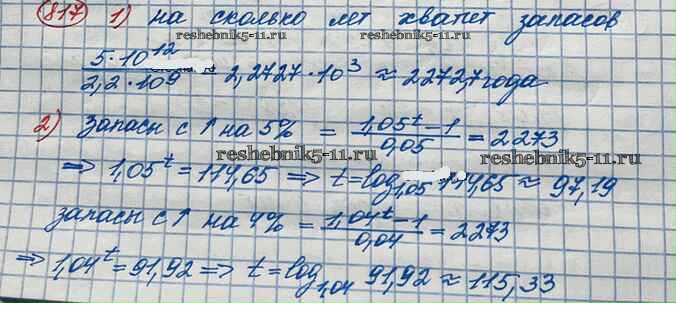 817 1) на сколько лет хватит запасов
reshebnik5-11.ru
5·10¹² / 2,2·10⁹ 2,2727·10³ ≈ 2272,7 года
2) запасы с ↑ на 5% = 1,05ᵗ-1 / 0,05 = 2273
reshebnik5-11.ru
reshebnik5-11.ru
⇒ 1,05ᵗ = 114,65 ⇒ t = log₁,₀₅ 114,65 ≈ 97,19
запасы с ↑ на 4% = 1,04ᵗ-1 / 0,04 = 2273
⇒ 1,04ᵗ = 91,92 ⇒ t = log₁,₀₄ 91,92 ≈ 115,33